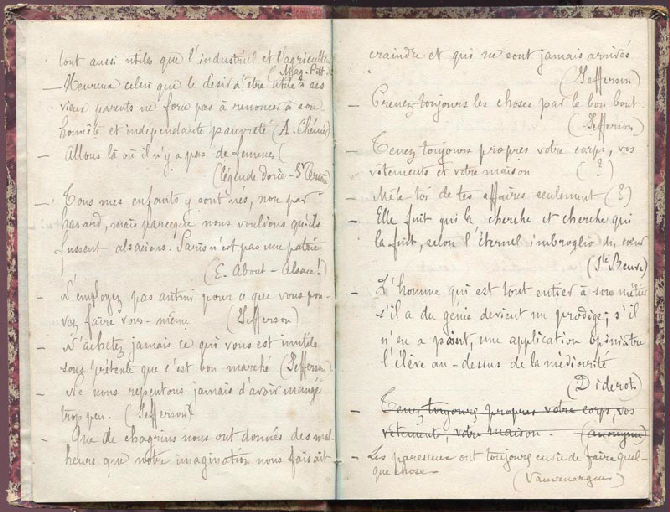 tout aussi utiles que l'industriel et l'agriculteur
(Mag. Pitt.)
— Heureux celui que le désir d'être utile à ses
vieux parents ne force pas à renoncer à son
honnête et indépendante pauvreté (A. Chénier)
— Allons là où il n'y a pas de femmes (
(légende dorée - St
— Tous mes enfants y sont nés, non par
hasard, mais parce que nous voulions qu'ils
fussent alsaciens. Paris n'est pas une patrie
(E. About - Alsace!)
— N'employez pas autrui pour ce que vous pou-
vez faire vous-même (Jefferson)
— N'achetez jamais ce qui vous est inutile
sous prétexte que c'est bon marché (Jefferson
— Ne nous repentons jamais d'avoir mangé
trop peu. (Jefferson)
— Que de chagrins nous ont donnés des mal
heurs que notre imagination nous faisait
craindre et qui ne sont jamais arrivés
(Jefferson)
— Prenez toujours les choses par le bon bout
(Jefferson)
— Tenez toujours propres votre corps, vos
vêtements et votre maison (?)
— Mêle toi de tes affaires seulement (?)
— Elle fuit qui la cherche et cherche qui
la fuit, selon l'éternel imbroglio du cœur
(Ste Beuve)
— L'homme qui est tout entier à son métier
s'il a du génie devient un prodige; s'il
n'en a point, une application opiniâtre
l'élève au-dessus de la médiocrité
(Diderot)
— Tenez toujours propres votre corps, vos
vêtement, votre maison. (anonyme)
— Les paresseux ont toujours envie de faire quel-
que chose
(Vauvenargues)